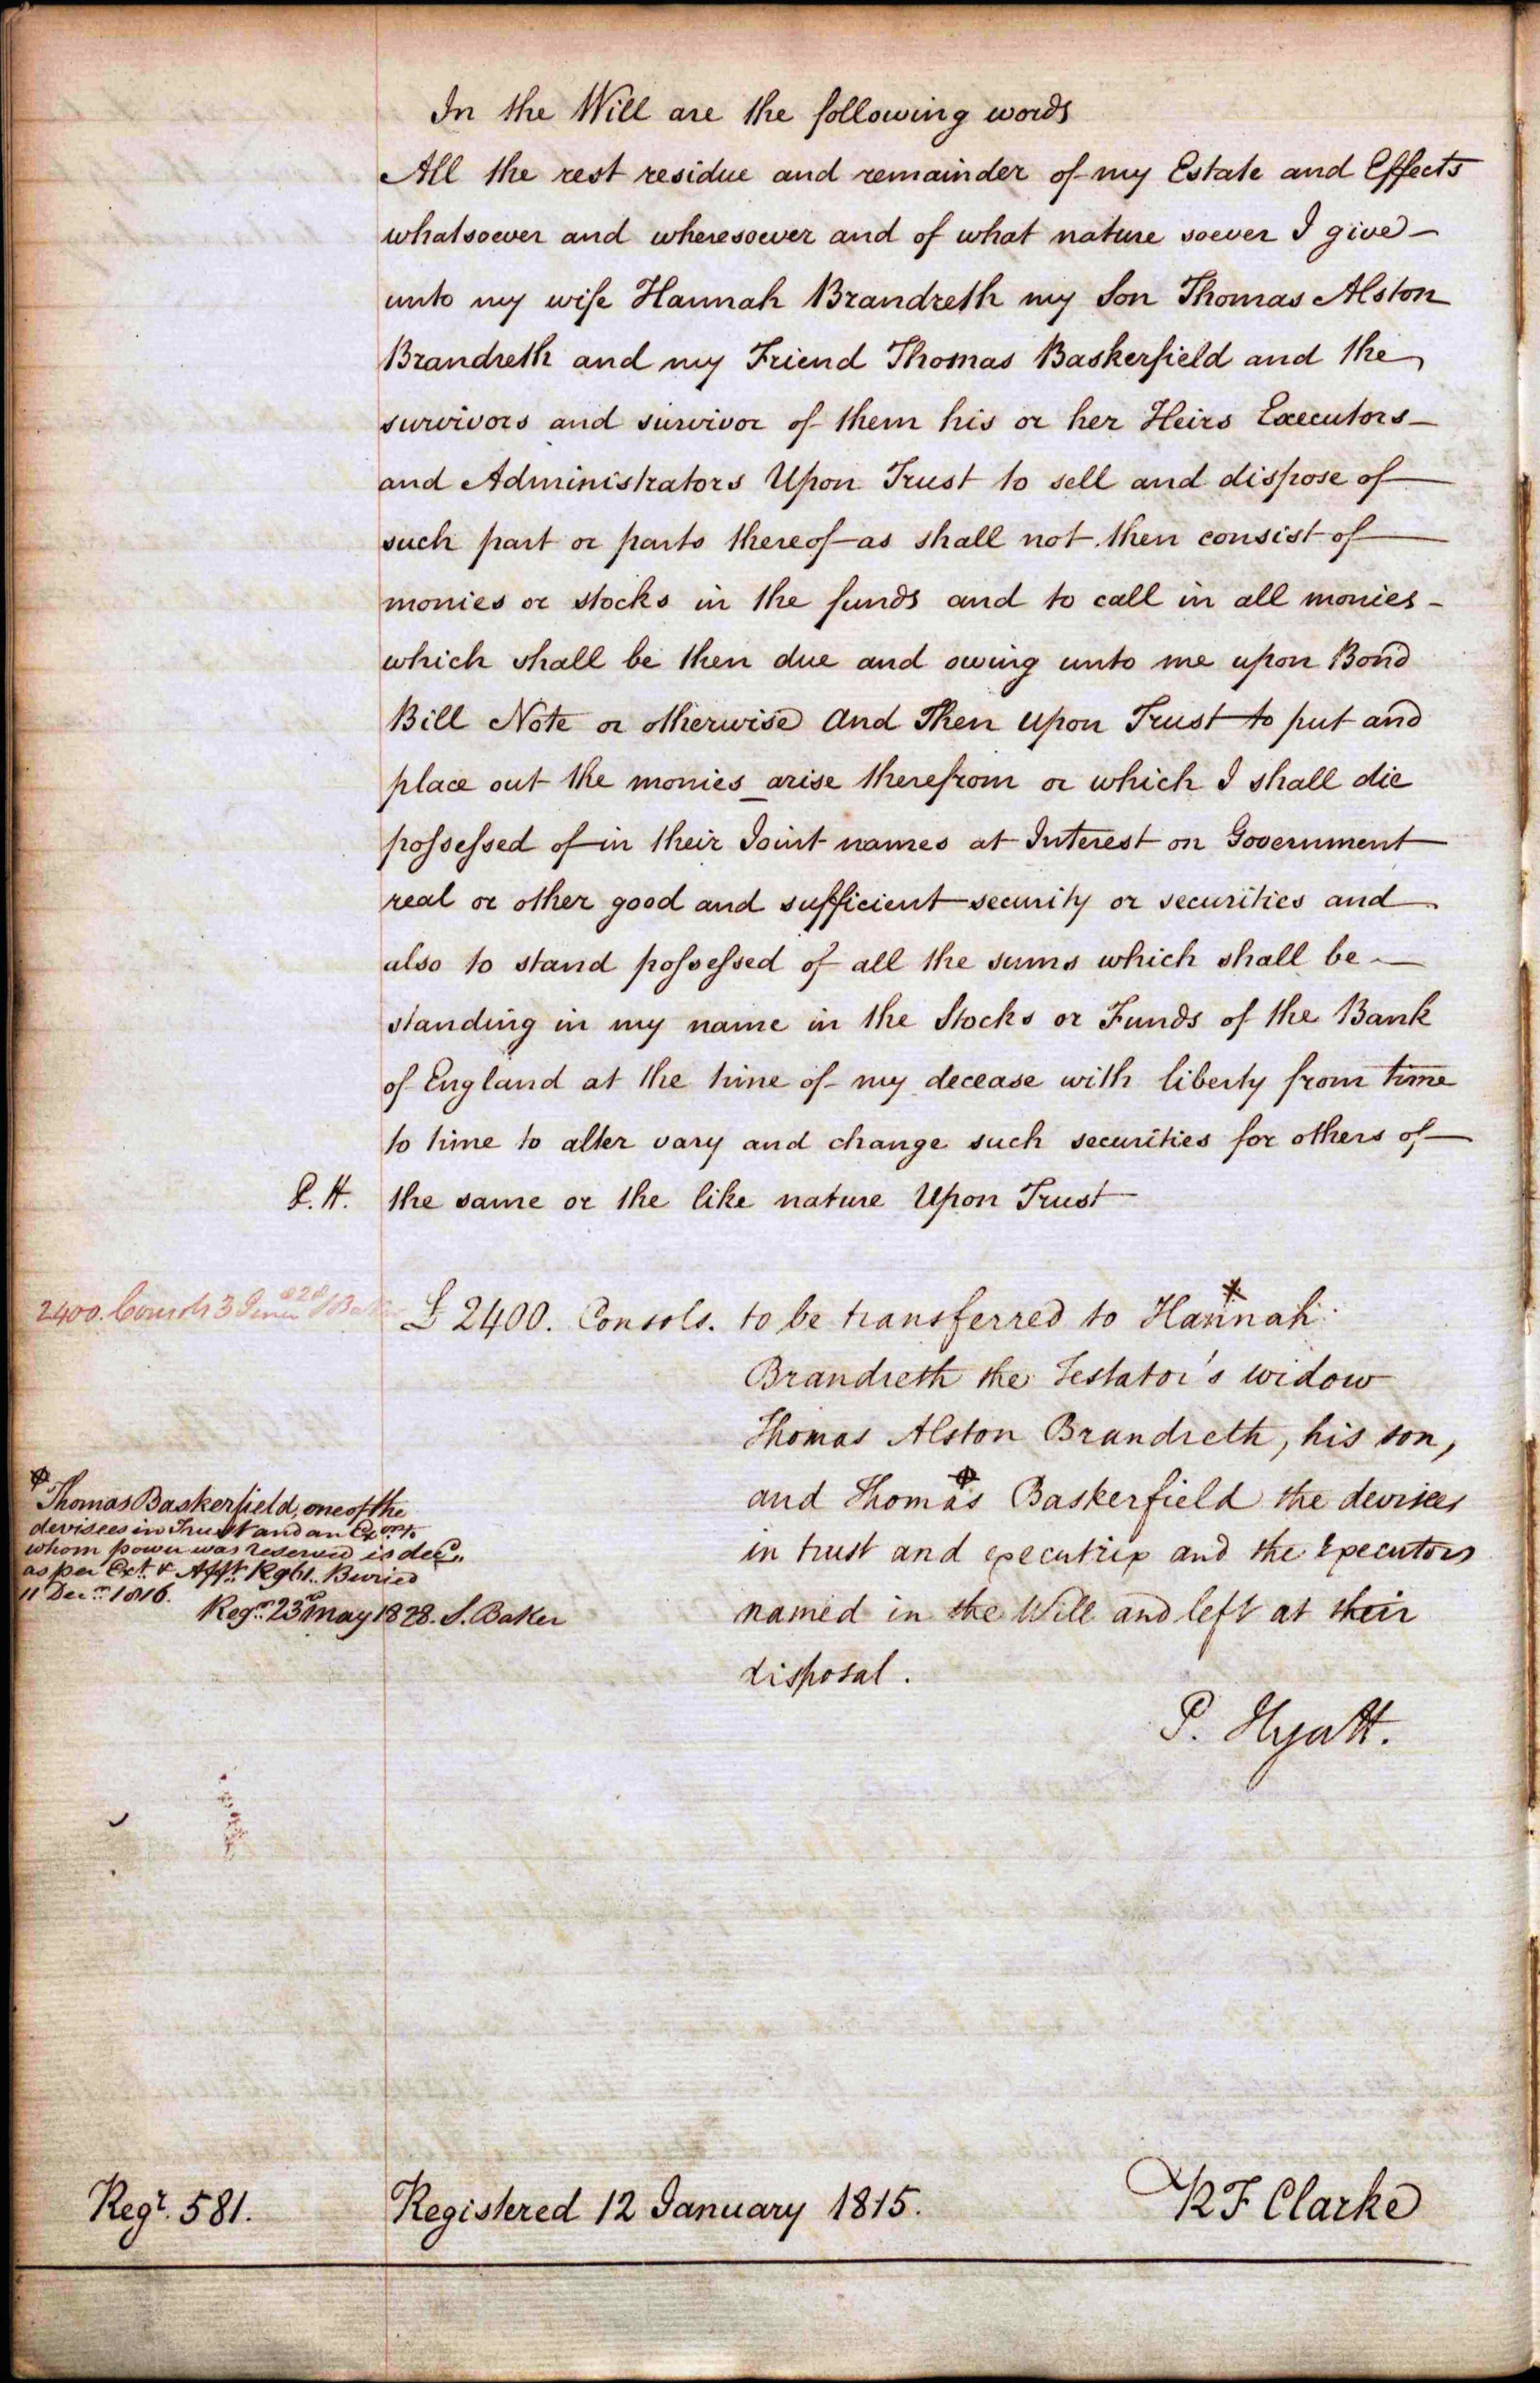 In the Will are the following words
All the rest residue and remainder of my Estate and Effects
whatsoever and wheresoever and of what nature soever I give
unto my wife Hannah Brandreth my Son Thomas Alston
Brandreth and my Friend Thomas Baskerfield and the
survivors and survivor of them his or her Heirs Executors
and Administrators Upon Trust to sell and dispose of
such part or parts thereof as shall not then consist of
monies or stocks in the funds and to call in all monies
which shall be then due and owing unto me upon Bond
Bill Note or otherwise And Then upon Trust to put and
place out the monies arise therefrom or which I shall die
possessed of in their Joint names at Interest on Government
real or other good and sufficient security or securities and
also to stand possessed of all the sums which shall be
standing in my name in the Stocks or Funds of the Bank
of England at the time of my decease with liberty from time
to time to alter vary and change such securities for others of
P. H. the same or the like nature Upon Trust
2400. Consols 3
£2400. Consols. to be transferred to Hannah
Brandreth the Testator's widow
Thomas Alston Brandreth, his son,
and Thomas Baskerfield the devisees
in trust and executrix and the Executors
named in the Will and left at their
disposal.
P. Hyatt.
Thomas Baskerfield, one of the
devisees in Trust and an Exor to
whom power was reserved is decd.
as per Ext. & Afft. Buried
11 Decr. 1816.
Regr. 23d May 1828. S. Baker
Regr. 581. Registered 12 January 1815. R F Clarke